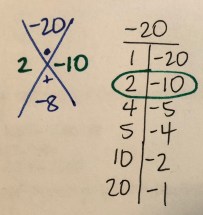 -20
•
2 -10
+
-8
-20
1 -20
2 -10
4 -5
5 -4
10 -2
20 -1